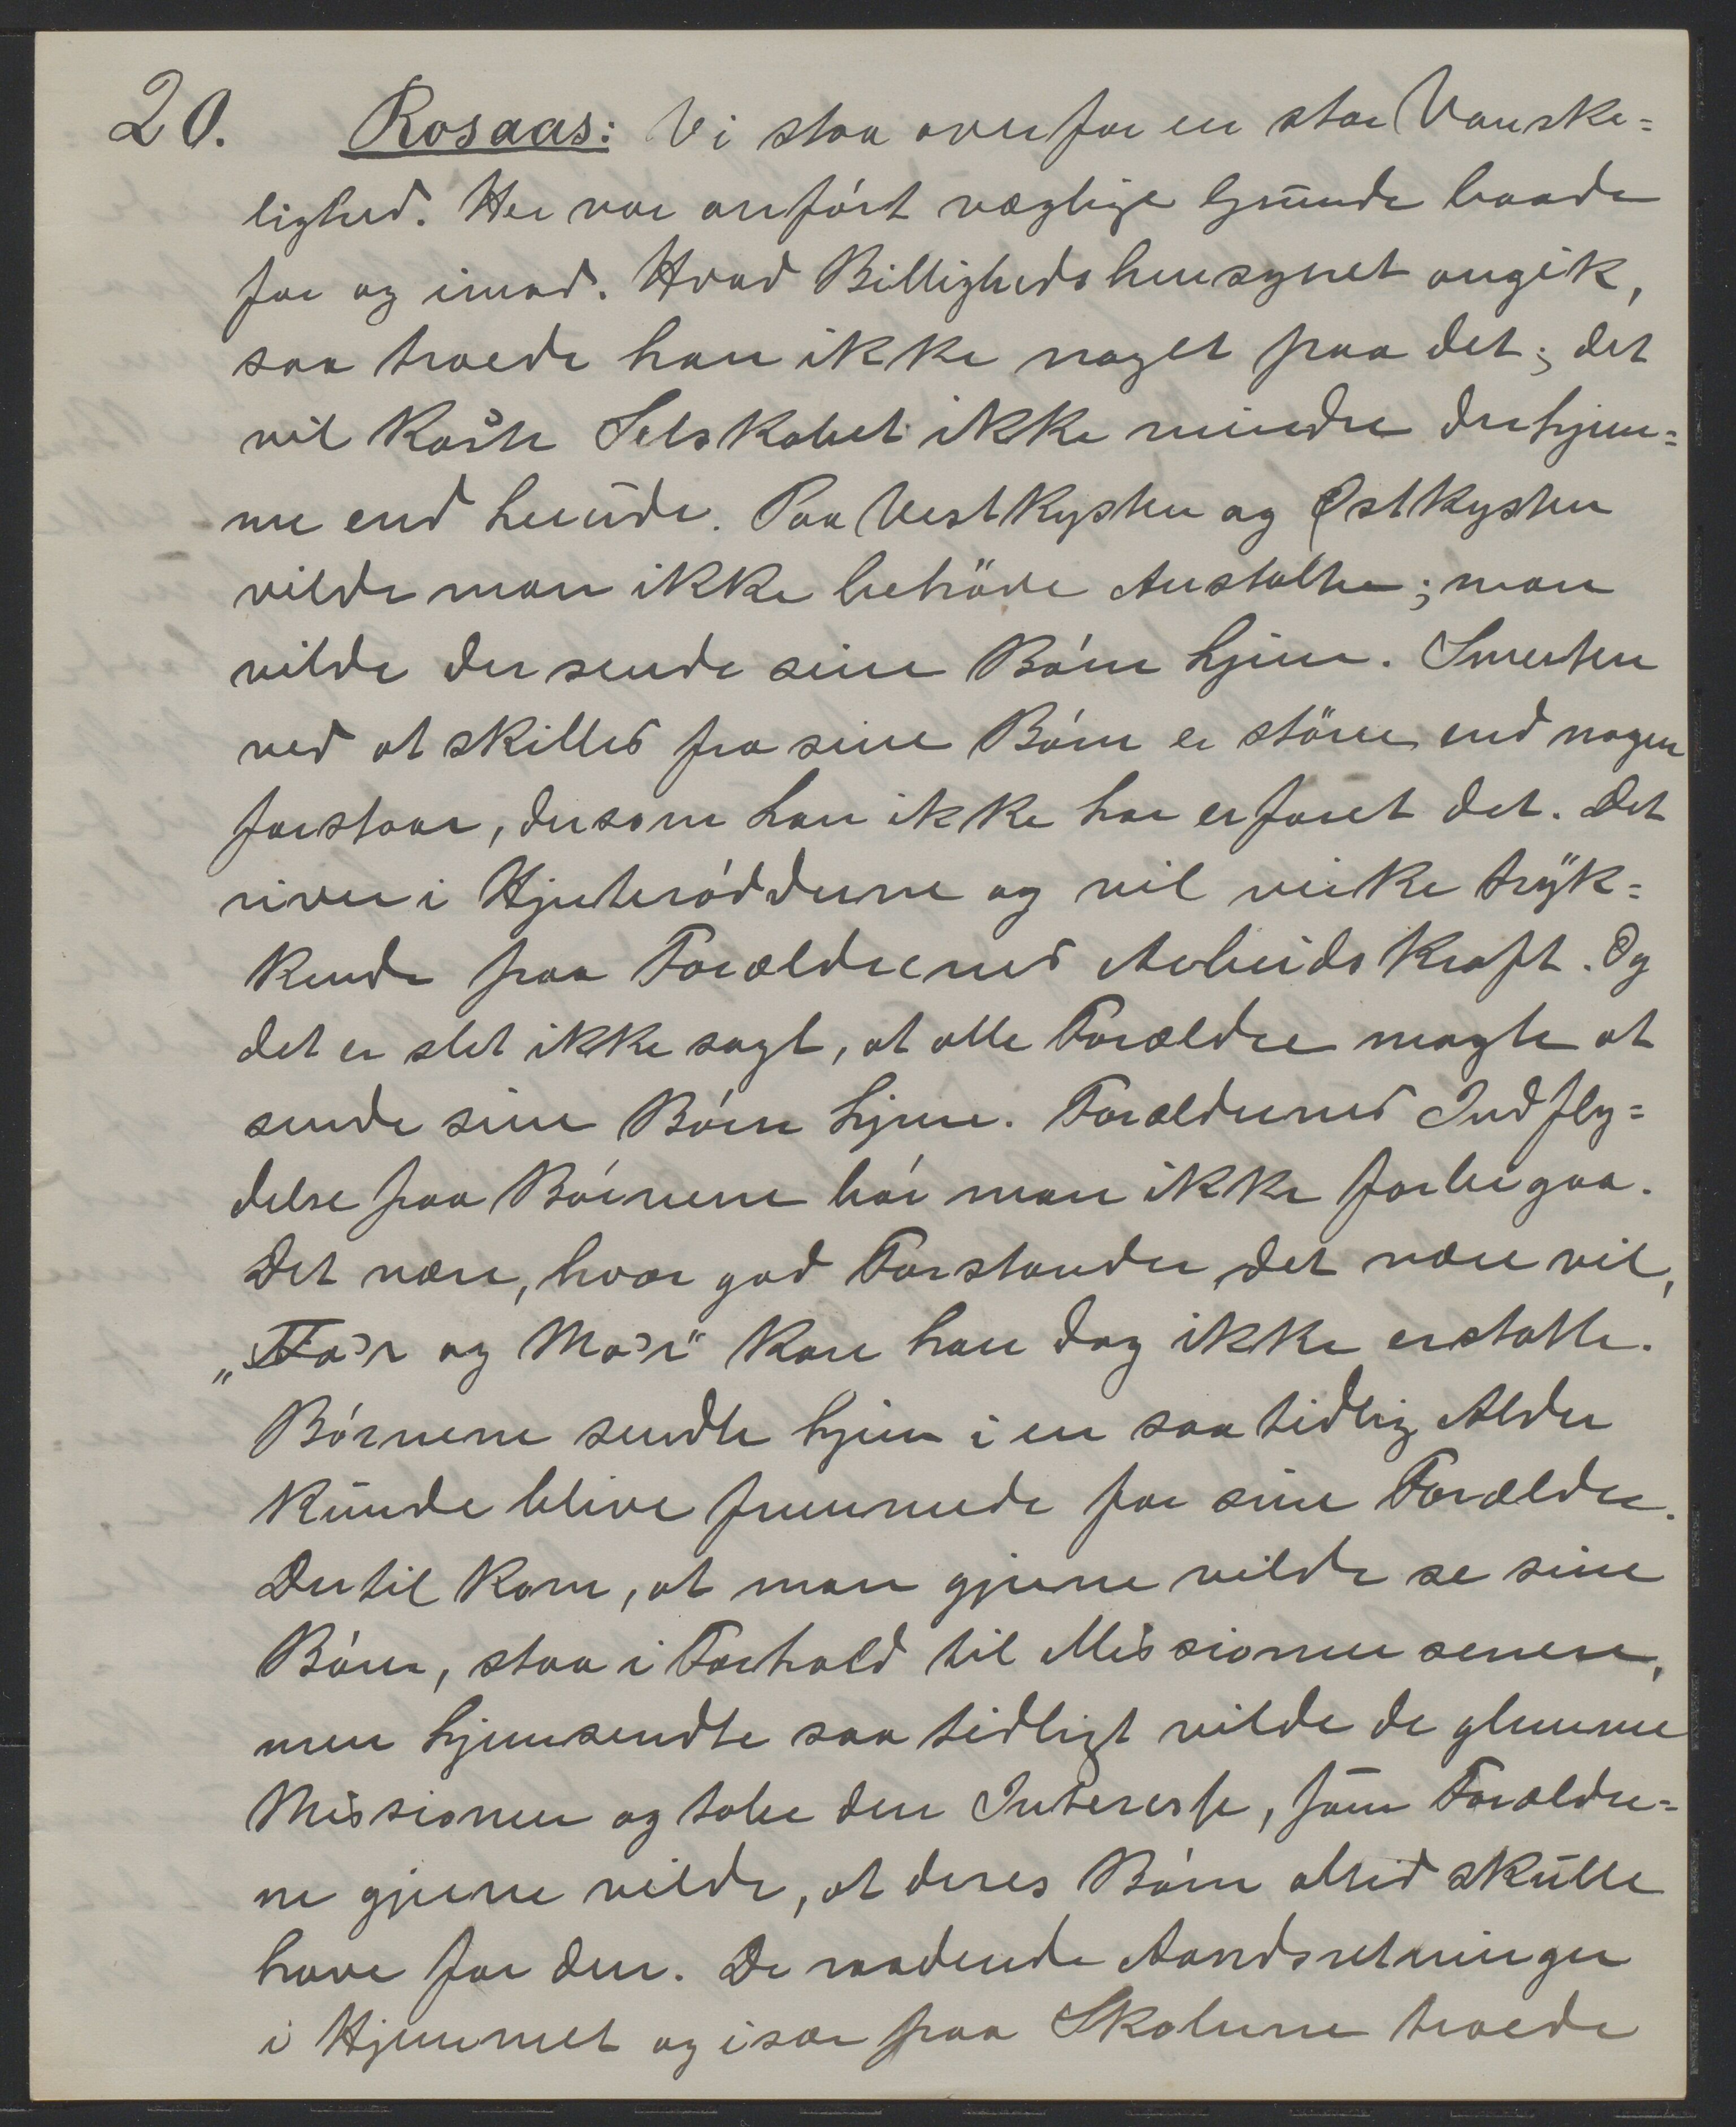 20. Rosaas: Vi staa overfor en stor Vanske=
lighed. Her var anført vægtige Grunde baade
for og imod. Hvad Billighedshensynet angik,
saa troede han ikke noget paa det; det
vil koste Selskabet ikke mindre derhjem=
me end herude. Paa Vestkysten og Østkysten
vilde man ikke behøve Anstalten; man
vilde der sende sine Børn hjem. Smerten
ved at skilles fra sine Børn er større, end nogen
forstaar, dersom han ikke har erfaret det. Det
river i Hjerterødderne og vil virke tryk=
kende paa Forældrenes Arbeidskraft. Og
det er slet ikke sagt, at alle Forældre magte at
sende sine Børn hjem. Forældrenes Indfly=
delse paa Børnene bør man ikke forbigaa.
Det være, hvor god Forstander det være vil,
„Fa'r og Mo'r“ kan han dog ikke erstatte.
Børnene sendte hjem i en saa tidlig Alder
kunde blive fremmede for sine Forældre.
Dertil kom, at man gjerne vilde se sine
Børn, staa i Forhold til Missionen senere,
men hjemsendte saa tidligt vilde de glemme
Missionen og tabe den Interesse, som Forældre=
ne gjerne vilde, at deres Børn altid skulle
have for den. De raadende Aandsretninger
i Hjemmet og især paa Skolerne troede